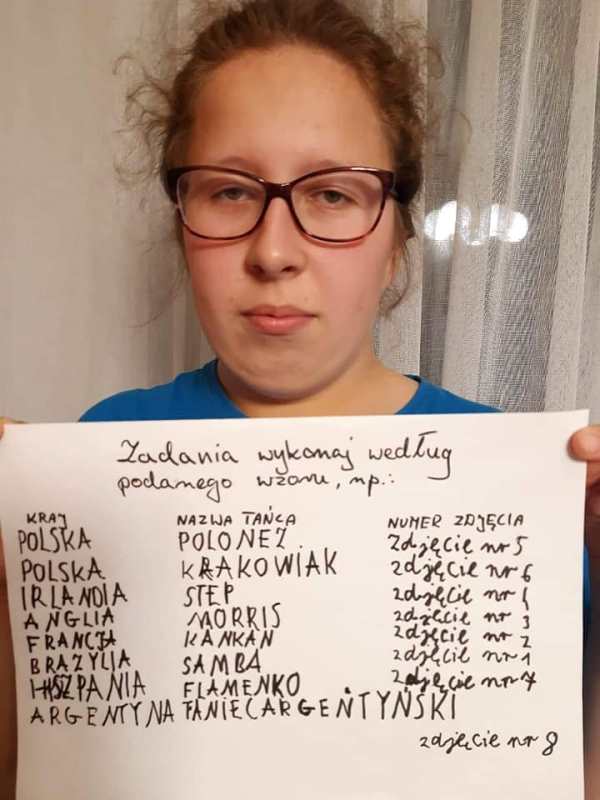 Zadania wykonaj według
podanego wzoru, np.:
KRAJ NAZWA TAŃCA NUMER ZDJĘCIA
POLSKA POLONEZ zdjęcie nr 5
POLSKA KRAKOWIAK zdjęcie nr 6
IRLANDIA STEP zdjęcie nr 4
ANGLIA MORRIS zdjęcie nr 3
FRANCJA KANKAN zdjęcie nr 2
BRAZYLIA SAMBA zdjęcie nr 1
HISZPANIA FLAMENKO zdjęcie nr 7
ARGENTYNA TANIEC ARGENTYŃSKI
zdjęcie nr 8